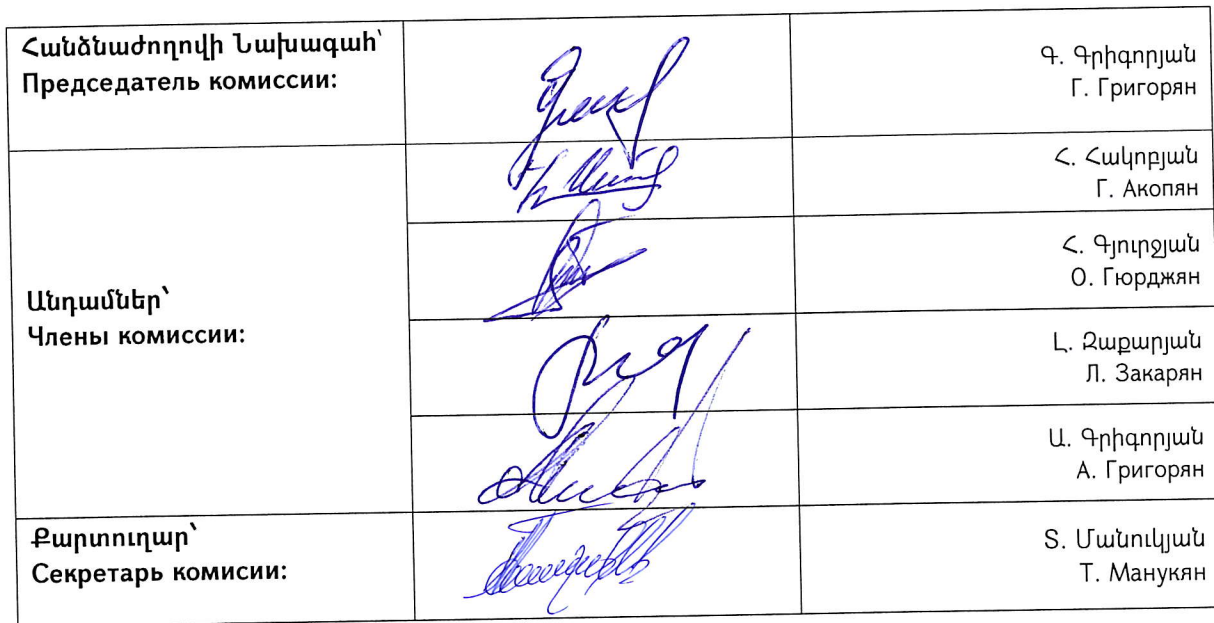 Հանձնաժողովի Նախագահ՝
Председатель комиссии:
Գ. Գրիգորյան
Г. Григорян
Անդամներ՝
Члены комиссии:
Հ. Հակոբյան
Г. Акопян
Հ. Գյուրջյան
О. Гюрджян
Լ. Զաքարյան
Л. Закарян
Ա. Գրիգորյան
А. Григорян
Քարտուղար՝
Секретарь комисии:
Տ. Մանուկյան
Т. Манукян